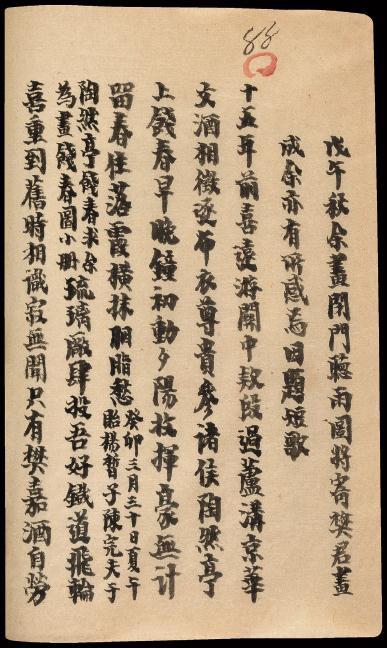 88
戊午秋余畫閉門聽雨圖將寄樊君畫
成余亦有所感為因題短歌
十五年前喜遠游關中款段過蘆溝京華
文酒相徵逐布衣尊貴參諸侯陶然亭
上餞春早晚鐘初動夕陽收揮毫無計
留春住落霞橫抹胭脂愁癸卯三月三十日夏午
貽楊晳子陳完夫于
陶然亭餞春求余
為畫餞春圖小冊琉璃廠肆投吾好鐵道飛輪
喜重到舊時相識寂無聞只有樊嘉酒自勞